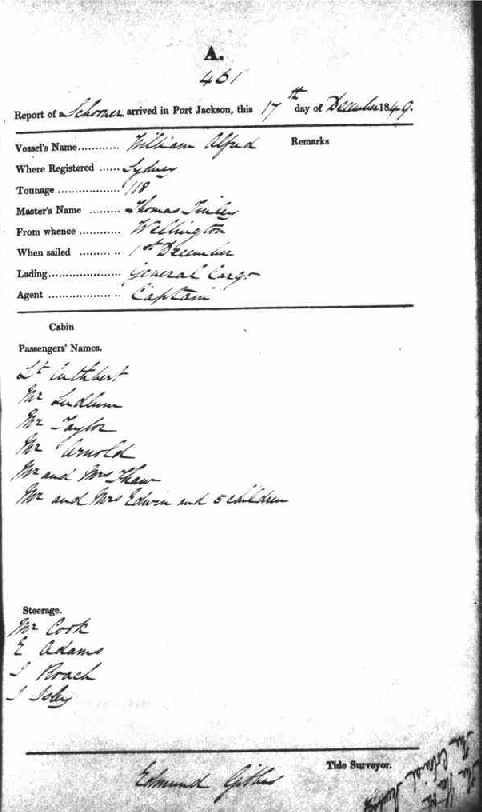 A.
461
Report of a Schooner arrived in Port Jackson, this 17th day of December 1849.
Vessel's Name ............ William Alfred
Remarks
Where Registered ...... Sydney
Tonnage .................. 118
Master's Name ......... Thomas Tinley
From whence ............ Wellington
When sailed ............ 1st December
Lading ..................... General Cargo
Agent ...................... Captain
Cabin
Passengers' Names.
Lt Cuthbert
Mr Ludlum
Mr Taylor
Mr Arnold
Mr and Mrs Shaw
Mr and Mrs Edwin and 5 children
Steerage.
Mr Cook
E Adams
J Roach
J Isley
Tide Surveyor.
Edmund Gibbes